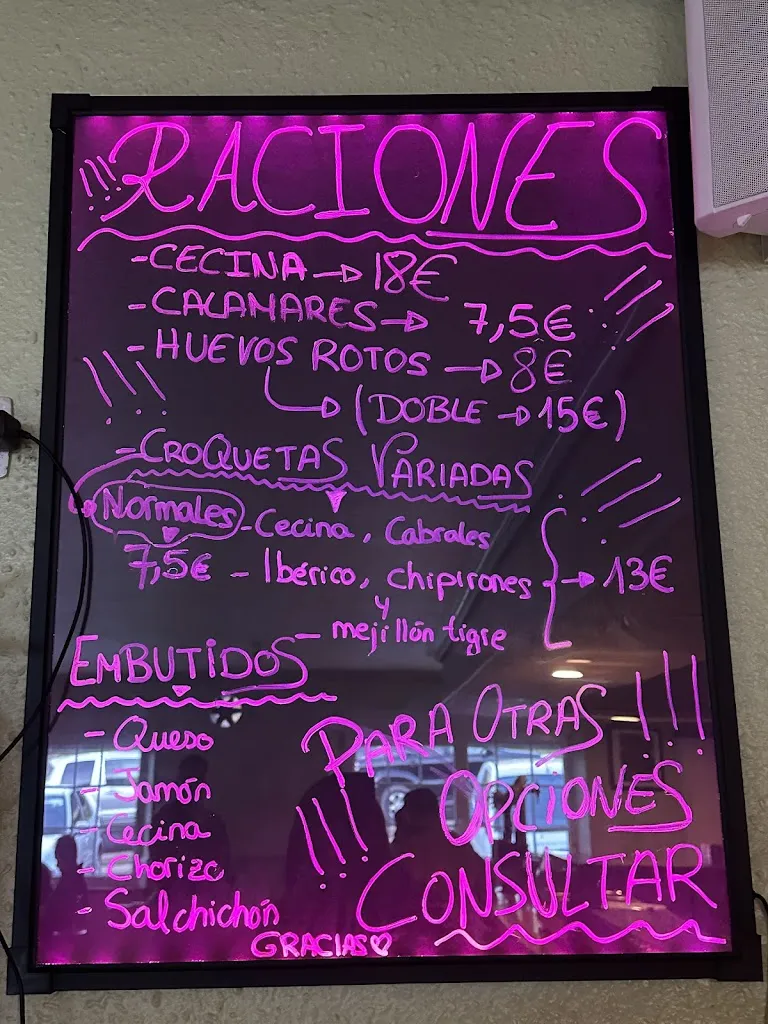 ¡¡¡RACIONES
-CECINA → 18€
-CALAMARES → 7,5€
-HUEVOS ROTOS → 8€
(DOBLE → 15€)
-CROQUETAS VARIADAS
Normales - Cecina, Cabrales
7,5€ - Ibérico, chipirones → 13€
y
- mejillón tigre
EMBUTIDOS
- Queso
- Jamón
- Cecina
- Chorizo
- Salchichón
PARA OTRAS !!!
OPCIONES
¡¡¡ CONSULTAR
GRACIAS♡